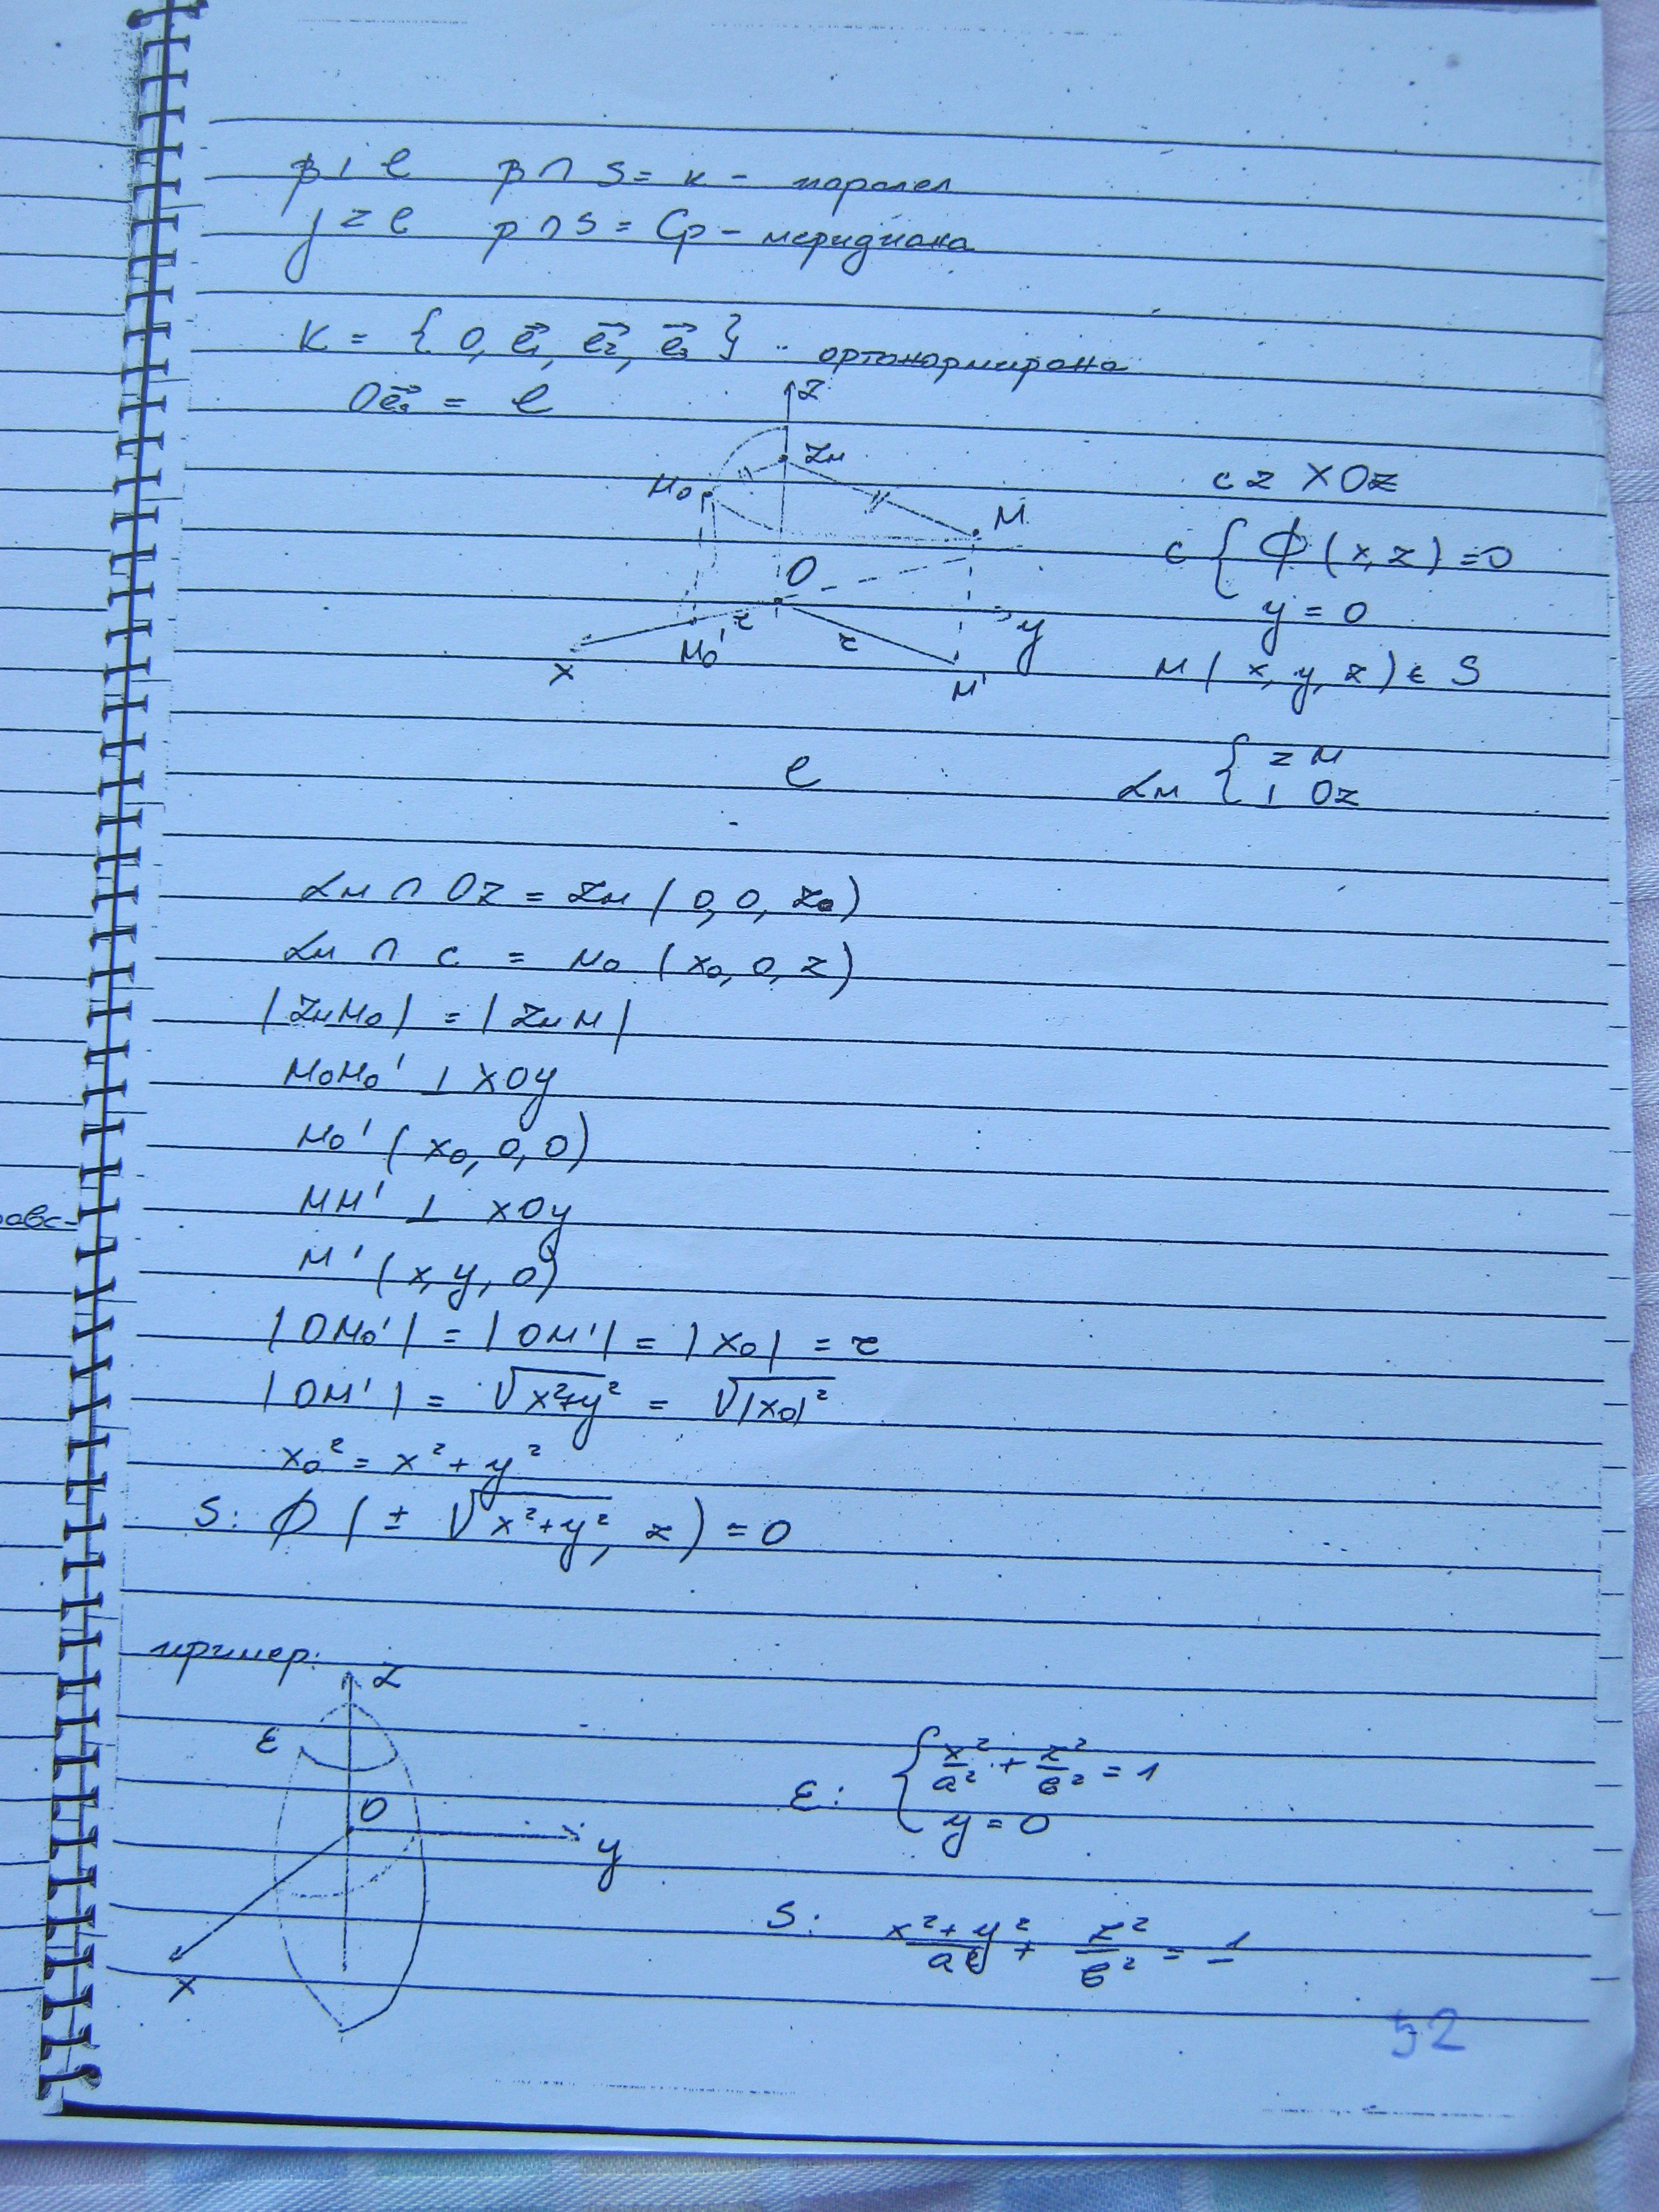 β ⊥ l   β ∩ S = k - паралел
γ z l   p ∩ S = Cp - меридиана
K = { O, e₁, e₂, e₃ } - ортонормирана
Oe₃ = l
z
Zм
M₀
M
O
y
r
r
M₀'
M'
x
c z XOz
c { Φ(x, z) = 0
y = 0
M(x, y, z) ∈ S
l
αм { z M
⊥ Oz
αм ∩ Oz = Zм (0, 0, z₀)
αм ∩ c = M₀ (x₀, 0, z)
|ZмM₀| = |ZмM|
M₀M₀' ⊥ XOy
M₀' (x₀, 0, 0)
MM' ⊥ XOy
M' (x, y, 0)
|OM₀'| = |OM'| = |x₀| = r
|OM'| = √x²+y² = √|x₀|²
x₀² = x² + y²
S: Φ (± √x²+y², z) = 0
пример:
z
ε
O
y
x
ε: { x²/a² + z²/b² = 1
y = 0
S: x²+y²/a² + z²/b² = 1
52
авс-